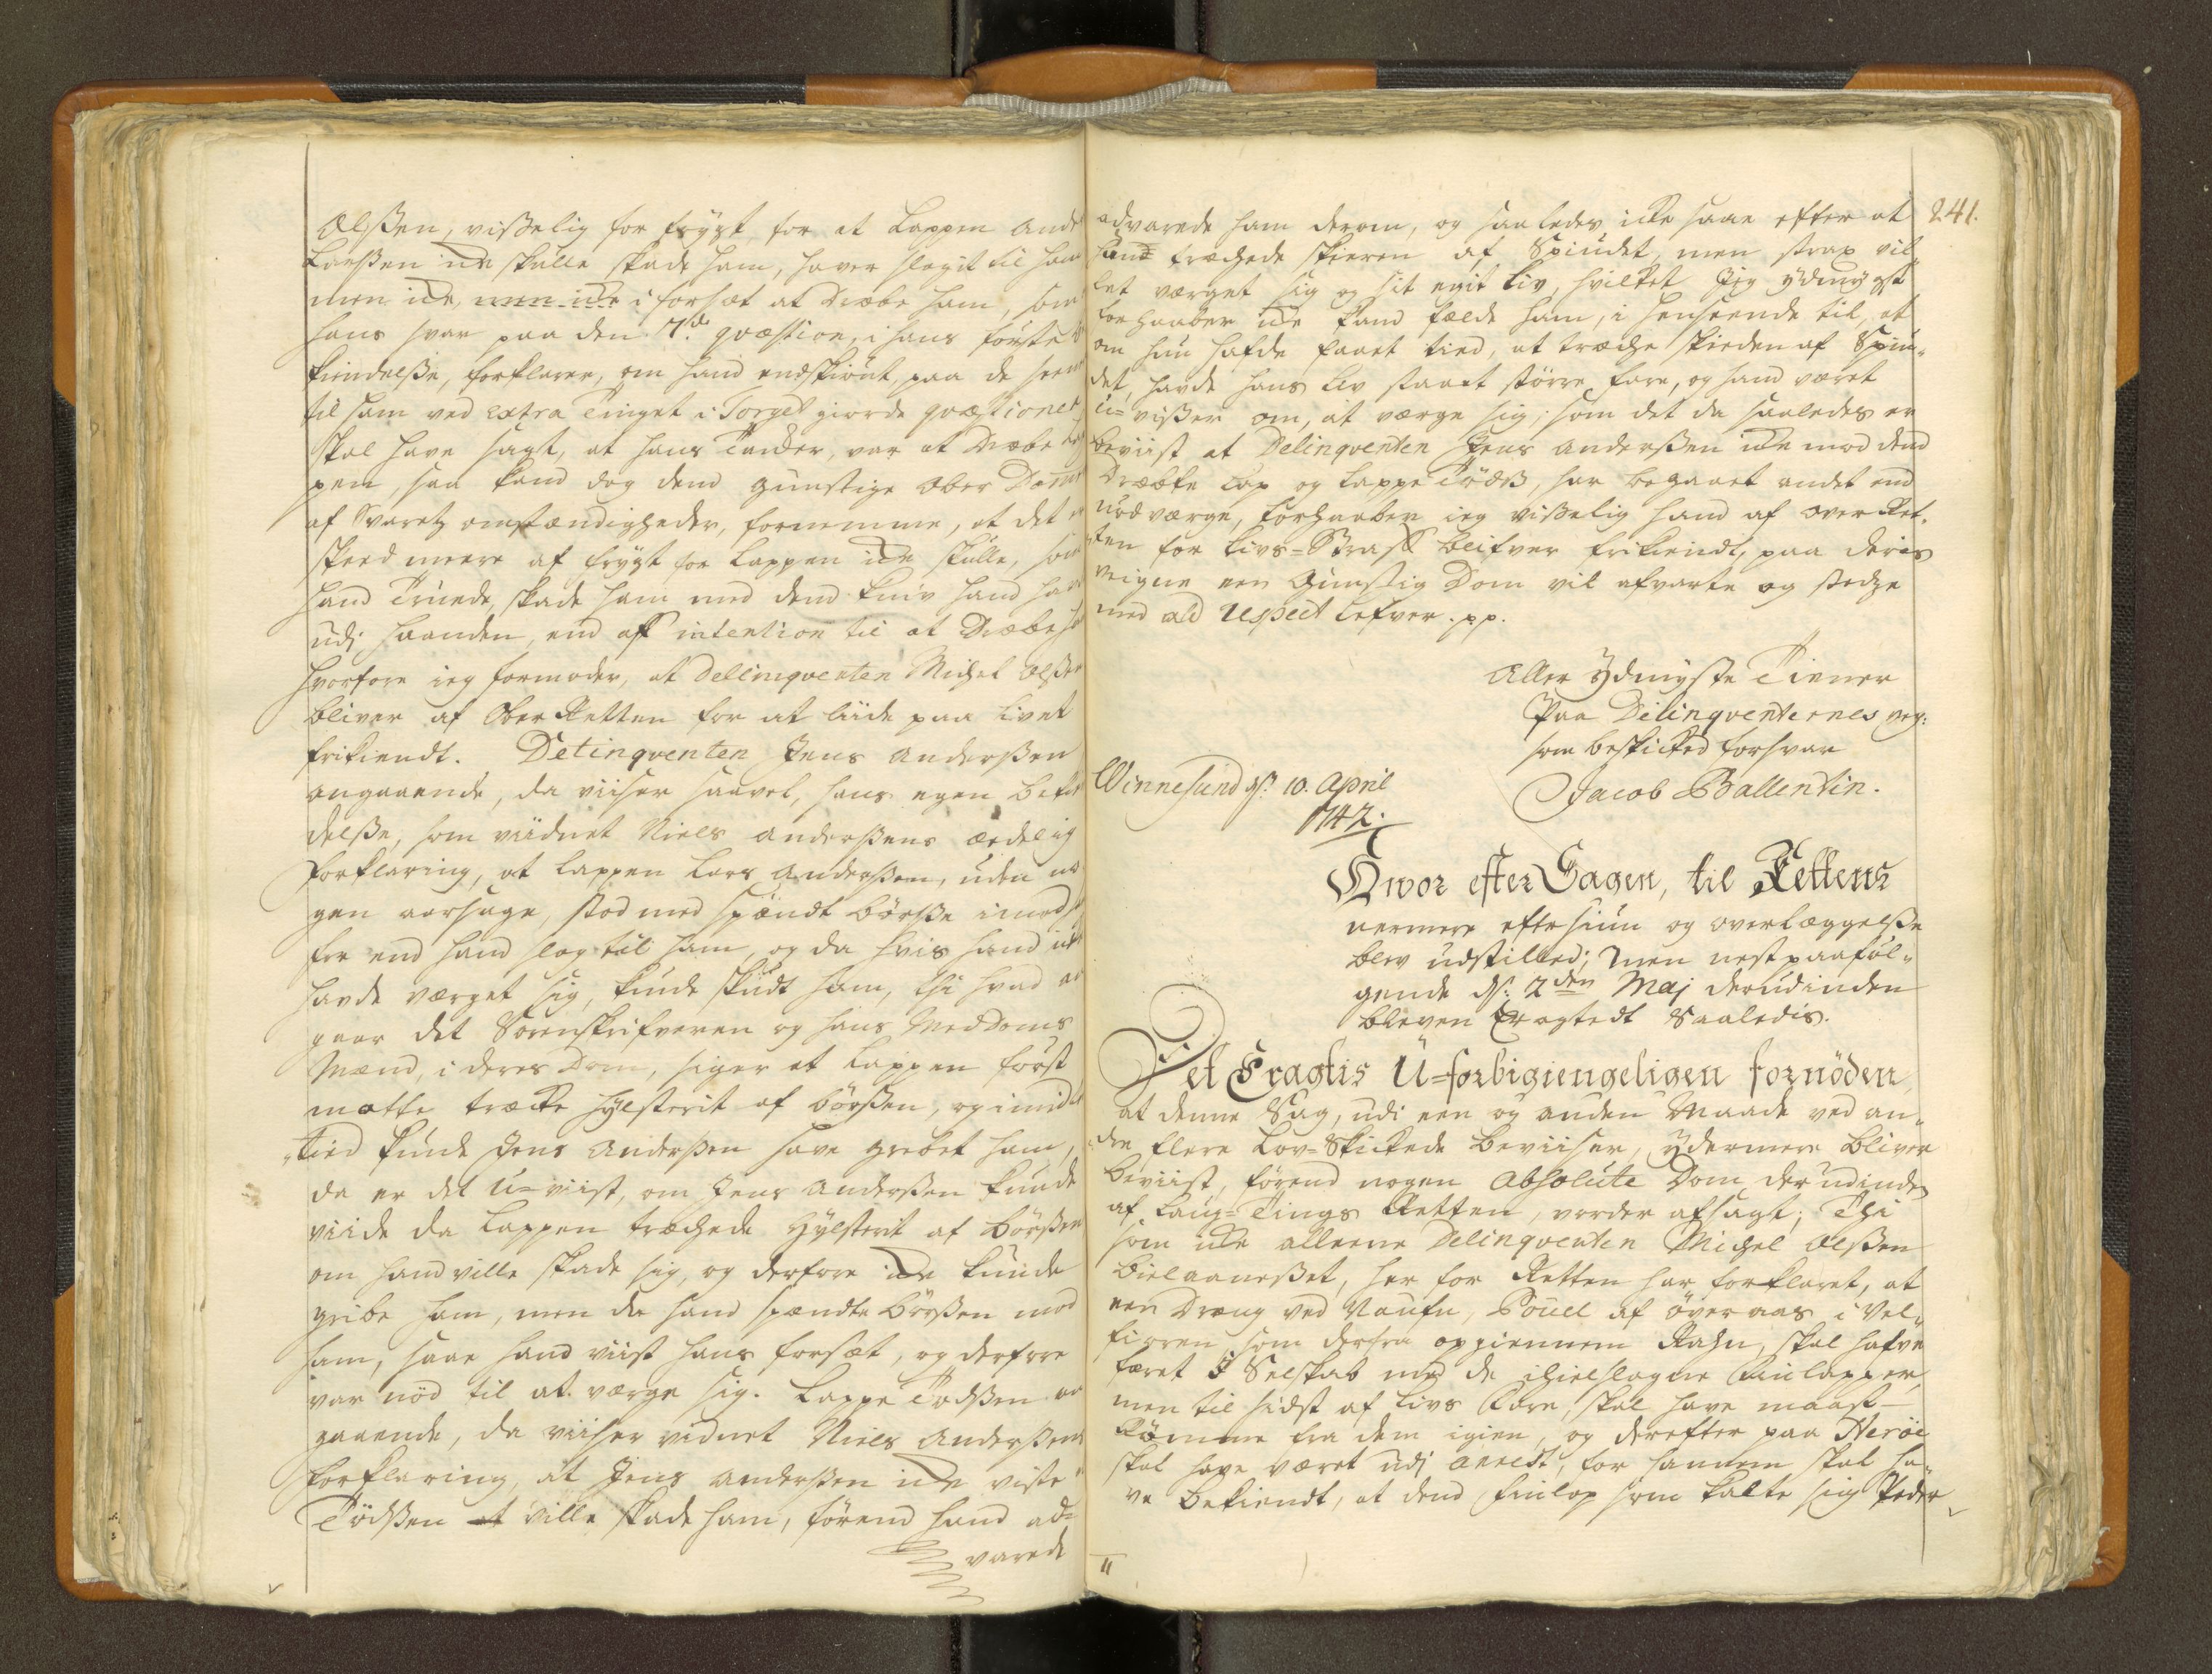 Olßen, vißelig for frygt for at Lappen Ande
Larßen icke skulle skade ham, haver slagit til ham
men icke, men icke i forsæt at Dræbe ham, som
hans svar paa den 7de qvæstion, i hans første be
kiendelße, forklarer, om hand endskiønt, paa de
til ham ved extra Tinget i Torget giorde qvæstioner
skal have sagt, at hans Tancker, var at Dræbe Lap
pen, saa kand dog dend gunstige Ober Dommer
af Svaretz omstændigheder, fornemme, at det er
skeed meere af frygt for Lappen icke skulle, som
hand Truede, skade ham med dend kniv hand hav
udj haanden, end aff intention til at Dræbe ham
hvorfore ieg formoder, at Delinqventen Michel Olßen
bliver af Ober Retten for at liide paa livet
frikiendt. Delinqventen Jens Anderßen
angaaende, da viiser saavel, hans egen bekien
delße, som viidnet Niels Anderßens ædelig
forklaring, at Lappen Lars Anderßen, uden no
gen aarsage, stod med spændt børße imod
før end hand slog til ham, og da hvis hand icke
havde værget sig, kunde skudt ham, thi hvad an
gaar det Sorenskrifveren og hans MedDoms
Mænd, i deres Dom, siger at Lappen først
matte trække hylsterit af børßen, og imid
tied kunde Jens Anderßen have grebet ham,
da er det U=viist, om Jens Anderßen kunde
viide da Lappen træchede Hylsterit af børßen
om hand ville skade sig, og derfore icke kunde
gribe ham, men da hand spændte børßen mod
ham, saae hand viist hans forsæt, og derfore
var nød til at værge sig. Lappe Tødßen an
gaaende, da viiser vidnet Niels Anderßens
forklaring, at Jens Anderßen icke viste
Tødßen at ville skade ham, førend hand ad=
varede
241.
advarede ham derom, og saaledes icke saae efter at
hand træchede skeeren af Spiudet, men strax vil
let værget sig og sit egit liv, hvilket Jeg ydmygst
forhaaber icke kand fælde ham, i henseende til, at
om hun hafde faaet tied, at træche skeeden af Spiu=
det, havde hans liv staaet større fare, og hand været
U=vißer om, at værge sig; som det da saaledes er
beviist at Delinqventen Jens Anderßen icke mod dend
Dræbte Lap og Lappe Tødß, har begaaet andet end
nødværge, forhaaber ieg vißelig hand af over Ret=
ten for livs=Straff blifver frikiendt, paa deris
veigne een Gunstig Dom vil afvarte og stedze
med ald respect lefver. pp.
Aller ydmygste Tienner
Paa Delinqventernes veg:
som beskicked forsvar
Jacob Ballentin.
Vinnesund ds: 10. April
1742.
Hvor efter Sagen, til Rettens
nermere eftersiun og overlæggelße
blev udstilled; Men nestpaaføl=
gende ds: 2den Maj derudinden
bleven Eragtedt Saaledis.
Det Eragtis U=forbigiengeligen fornøden,
at denne Sag, udi een og anden Maade ved an=
dre flere Lov=Skickede beviiser, ydermere bliver
beviist, førend nogen Absolute Dom derudinden
af Laug=Tings Retten, vorder afsagt; Thi
som icke alleene Delinqventen Michel Olßen
Bielaaneßet, her for Retten har forklaret, at
een Dreng ved Naufn, Pouel af Øver aas i Vel=
fioren som derfra oppiennem Raen, skal hafve
været I Selskab med de ihielslagne Finlapper,
men til sidst af livs Fare, skal have maast
Rømme fra dem igien, og derefter paa Herøe
skal have været udj arrest, for hannem skal ha=
ve bekiendt, at dend Finlap som kalte sig Peder